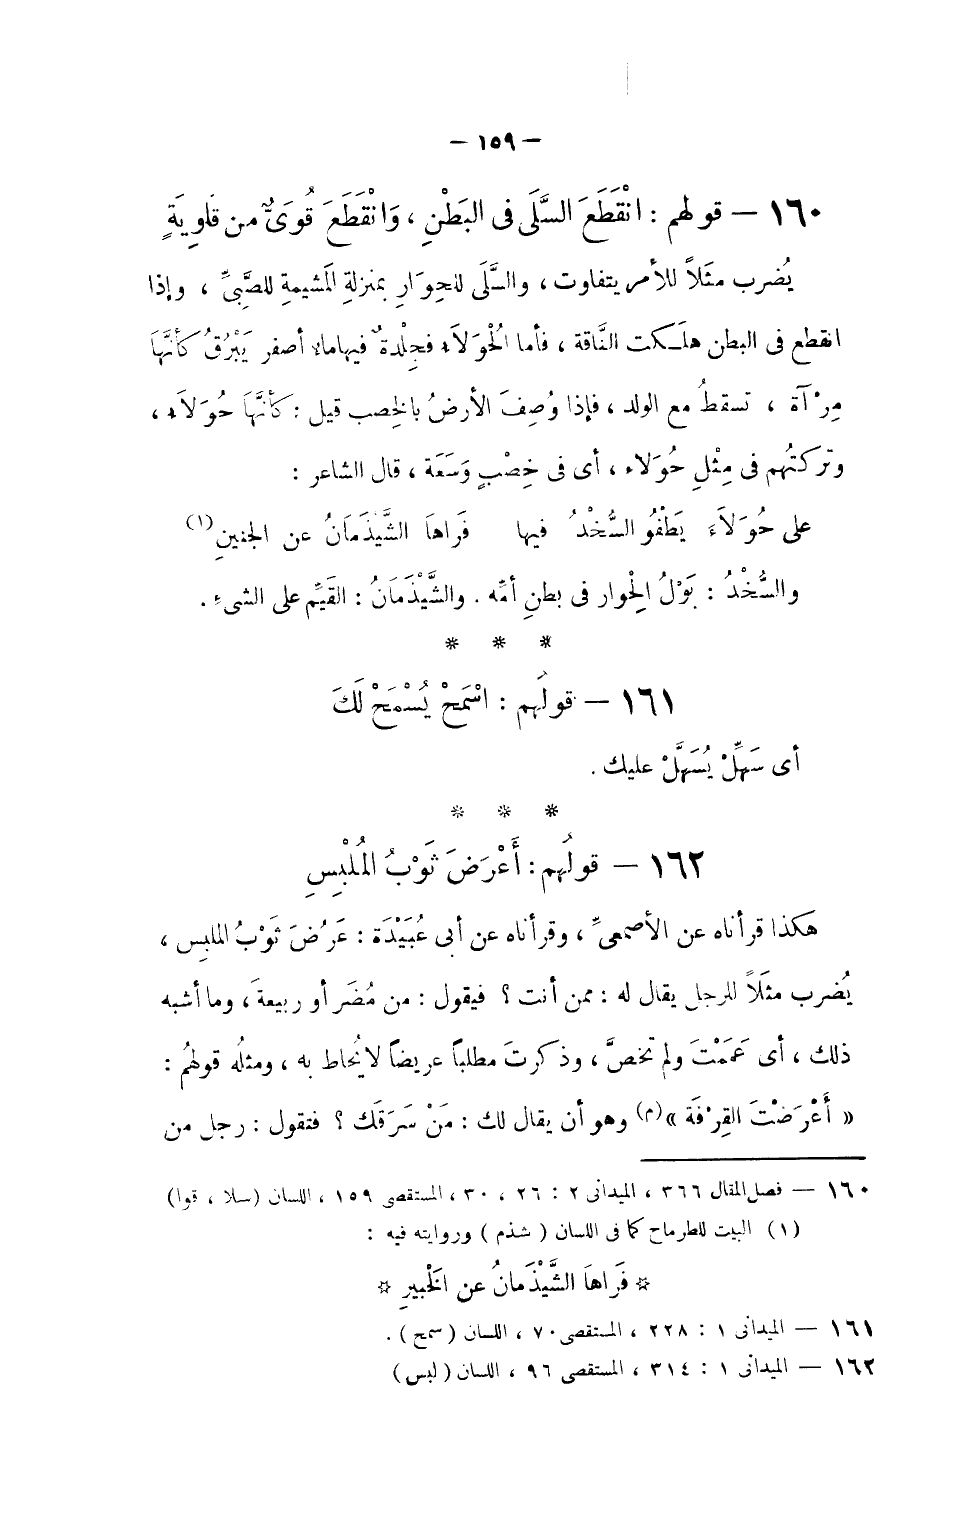 — ١٥٩ —
١٦٠ — قولهم : انْقَطَعَ السَّلَى فى البَطْنِ ، وَانْقَطَعَ قُوَىٌّ من قَاوِيَةٍ
يُضرب مثَلاً للأمر يتفاوت ، والسَّلَى للحِوَارِ بمنزلةِ المَشيمةِ للصَّبىِّ ، وإذا
انقطع فى البطن هلَكت النَّاقة ، فأما الحُوَلَاء فجِلْدةٌ فيها ماء أصفر يَبْرُقُ كَأنَّهَا
مِرْآة ، تسقطُ مع الولد ، فإذا وُصِفَ الأرضُ بالخصب قيل : كَأنَّهَا حُوَلَاء ،
وتركتُهم فى مِثْلِ حُوَلاء ، أى فى خِصْبٍ وَسَعَة ، قال الشاعر :
على حُوَلَاءَ يَطْفُو السُّخْدُ فيها فَراهَا الشَّيْذَمَانُ عن الجنينِ (١)
والسُّخْدُ : بَوْلُ الحِوار فى بطنِ أمِّه . والشَّيْذَمَانُ : القَيِّم على الشىءِ .
* * *
١٦١ — قولُهم : اسْمَحْ يُسْمَحْ لَكَ
أى سَهِّلْ يُسَهَّلْ عليك .
* * *
١٦٢ — قولُهم : أَعْرَضَ ثَوْبُ المُلْبِسِ
هَكذا قرأناه عن الأصمعىِّ ، وقرأناه عن أبى عُبَيْدَة : عَرُضَ ثَوْبُ الملبِس ،
يُضرب مثَلاً للرجل يقال له : ممن أنت ؟ فيقول : من مُضَر أو ربيعةَ ، وما أشبه
ذلك ، أى عَمَمْتَ ولم تخصَّ ، وذكرتَ مطلباً عريضاً لا يُحاط به ، ومثلُه قولهُم :
« أَعْرَضْتَ القِرْفَة » (م) وهو أن يقال لك : مَنْ سَرَقَك ؟ فتقول : رجل من
١٦٠ — فصل المقال ٣٦٦ ، الميدانى ٢ : ٢٦ ، ٣٠ ، المستقصى ١٥٩ ، اللسان (سلا ، قوا)
(١) البيت للطرماح كما فى اللسان ( شذم ) وروايته فيه :
* فَرَاهَا الشَّيْذَمانُ عن الخَبيرِ *
١٦١ — الميدانى ١ : ٢٢٨ ، المستقصى ٧٠ ، اللسان (سمح) .
١٦٢ — الميدانى ١ : ٣١٤ ، المستقصى ٩٦ ، اللسان (لبس)